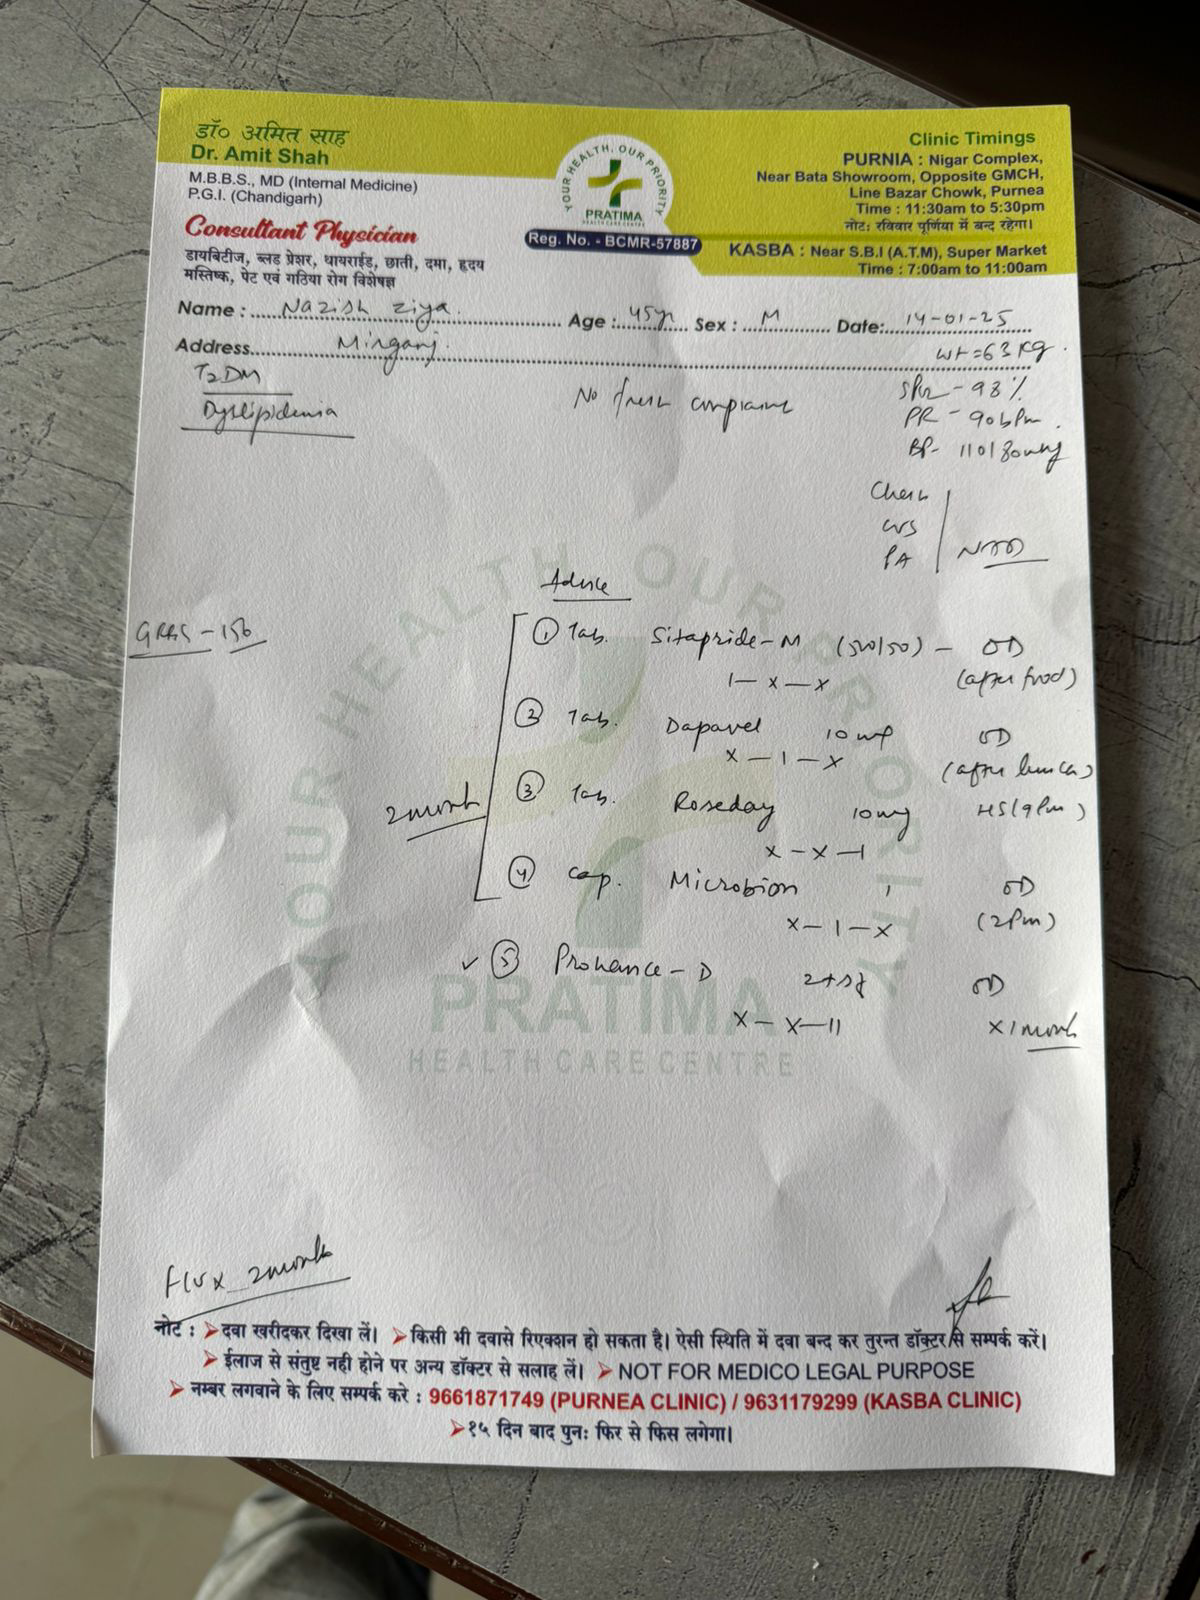 डॉ० अमित साह
Dr. Amit Shah
M.B.B.S., MD (Internal Medicine)
P.G.I. (Chandigarh)
Consultant Physician
डायबिटीज, ब्लड प्रेशर, थायराईड, छाती, दमा, हृदय
मस्तिष्क, पेट एवं गठिया रोग विशेषज्ञ
YOUR HEALTH, OUR PRIORITY
PRATIMA
HEALTH CARE CENTRE
Reg. No. - BCMR-57887
Clinic Timings
PURNIA : Nigar Complex,
Near Bata Showroom, Opposite GMCH,
Line Bazar Chowk, Purnea
Time : 11:30am to 5:30pm
नोट: रविवार पूर्णिया में बन्द रहेगा।
KASBA : Near S.B.I (A.T.M), Super Market
Time : 7:00am to 11:00am
Name : Nazish Ziya Age : 45yr Sex : M Date: 14-01-25
Address Mirganj.
wt=63 kg.
T2DM
Dyslipidemia
No fresh complaint
SPO2 - 98%
PR - 90bpm.
BP- 110/80mmHg
Chest
CVS
PA
NAD
Advice
GRBS - 156
① Tab. Sitapride-M (500/50) - OD
1 - x - x (after food)
② Tab. Dapavel 10mg OD
x - 1 - x (after lunch)
2 month
③ Tab. Roseday 10mg HS(9pm)
x - x - 1
④ Cap. Microbion 1 OD
x - 1 - x (2pm)
✓ ⑤ Prohance - D 2tsf OD
x - x - 11 x 1 month
YOUR HEALTH, OUR PRIORITY
PRATIMA
HEALTH CARE CENTRE
F/U x 2month
नोट : ➤दवा खरीदकर दिखा लें। ➤किसी भी दवासे रिएक्शन हो सकता है। ऐसी स्थिति में दवा बन्द कर तुरन्त डॉक्टर से सम्पर्क करें।
➤ईलाज से संतुष्ट नही होने पर अन्य डॉक्टर से सलाह लें। ➤NOT FOR MEDICO LEGAL PURPOSE
➤नम्बर लगवाने के लिए सम्पर्क करे : 9661871749 (PURNEA CLINIC) / 9631179299 (KASBA CLINIC)
➤१५ दिन बाद पुनः फिर से फिस लगेगा।